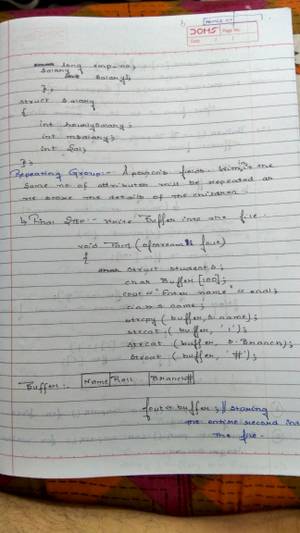 DOMS
Page No.
Date
long emp-no;
Salary salary;
};
struct Salary
{
int hourlysalary;
int msalary;
int Sal;
};
Repeating Group:- A person's fields
Same no of attributes will be repeated as
we store the details of the children.
Final Step:- Write Buffer into the file.
void Fun (ofstream & fout)
{
struct student s;
char Buffer [100];
cout << "Enter name" << endl;
cin >> s.name;
strcpy (buffer, s.name);
strcat (buffer, '|');
strcat (buffer, s.Branch);
strcat (buffer, '#');
Buffer :- Name Roll Branch#
fout << buffer; // storing
the entire record into
the file.